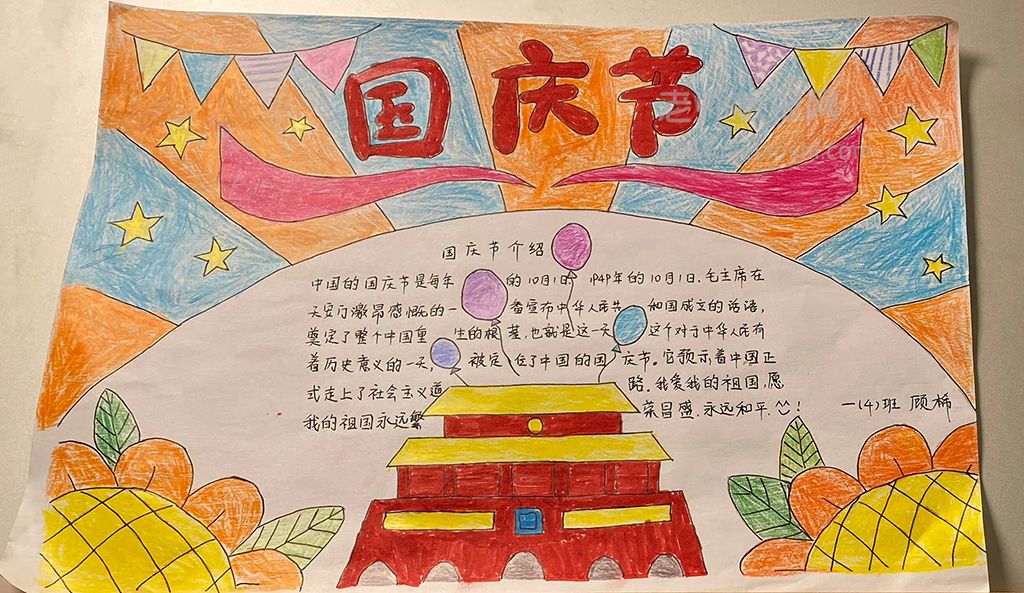 国庆节
国庆节介绍
中国的国庆节是每年的10月1日 1949年的10月1日.毛主席在
天安门激昂感慨的一番宣布中华人民共和国成立的话语,
奠定了整个中国重生的根基,也就是这一天 这个对于中华人民有
着历史意义的一天, 被定位了中国的国庆节。它预示着中国正
式走上了社会主义道路.我爱我的祖国,愿
我的祖国永远繁荣昌盛.永远和平.!
一(4)班 顾